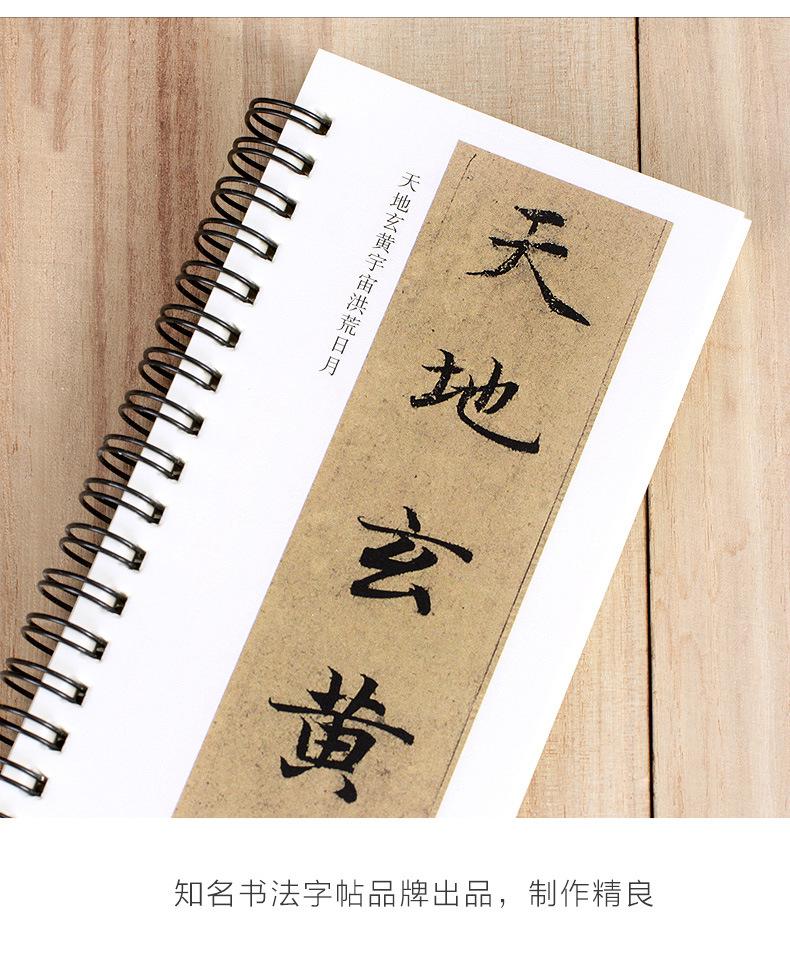 天地玄黄
天地玄黄宇宙洪荒日月
知名书法字帖品牌出品，制作精良